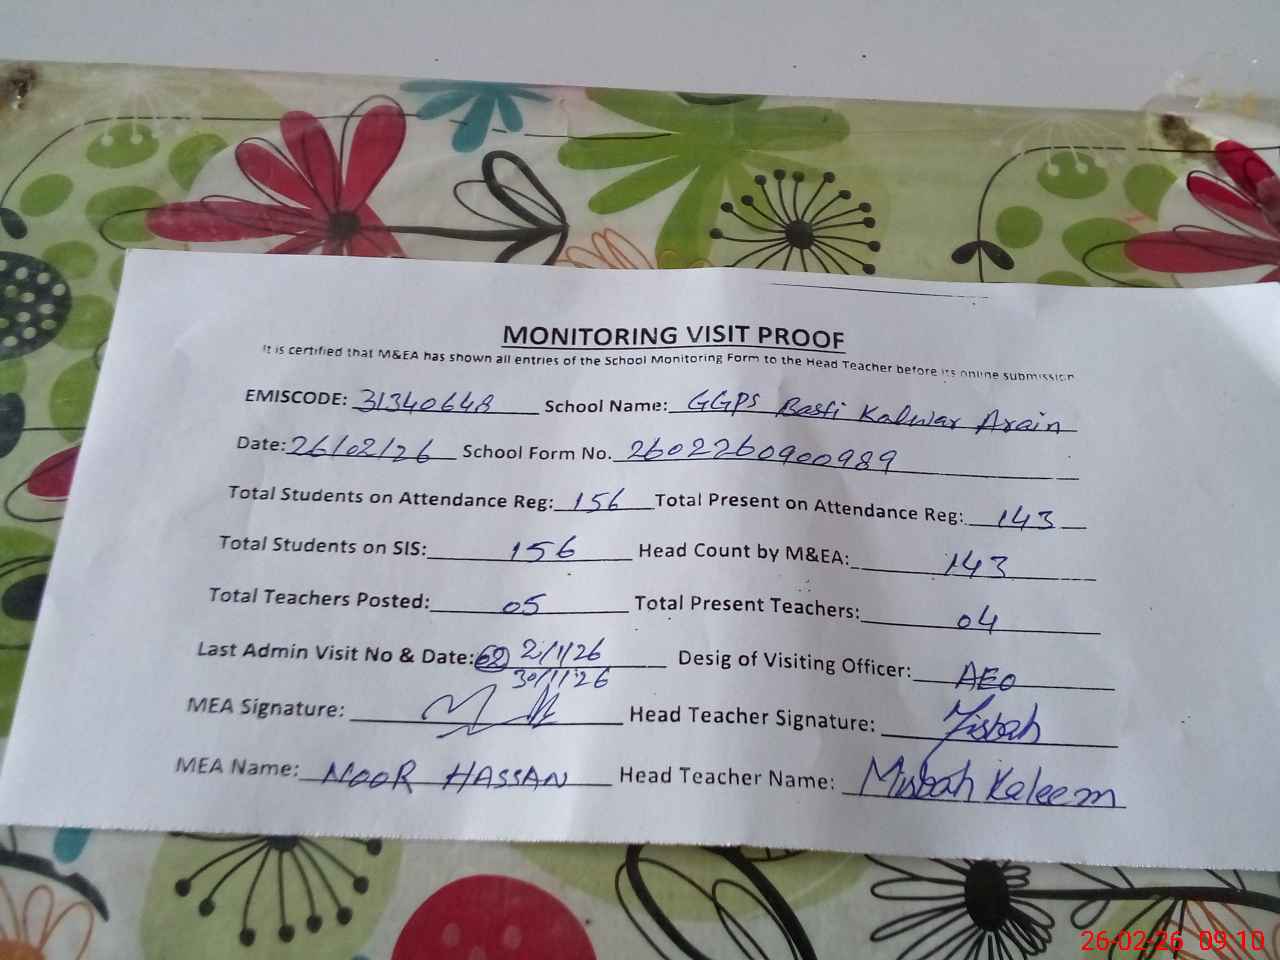 MONITORING VISIT PROOF
It is certified that M&EA has shown all entries of the School Monitoring Form to the Head Teacher before its online submission
EMISCODE: 31340648 School Name: GGPS Basti Kalwar Arain
Date: 26/02/26 School Form No. 2602260900989
Total Students on Attendance Reg: 156 Total Present on Attendance Reg: 143
Total Students on SIS: 156 Head Count by M&EA: 143
Total Teachers Posted: 05 Total Present Teachers: 04
Last Admin Visit No & Date: 02 2/1/26 Desig of Visiting Officer: AEO
30/1/26
MEA Signature: Head Teacher Signature: Misbah
MEA Name: NOOR HASSAN Head Teacher Name: Misbah Kaleem
26-02-26 09:10